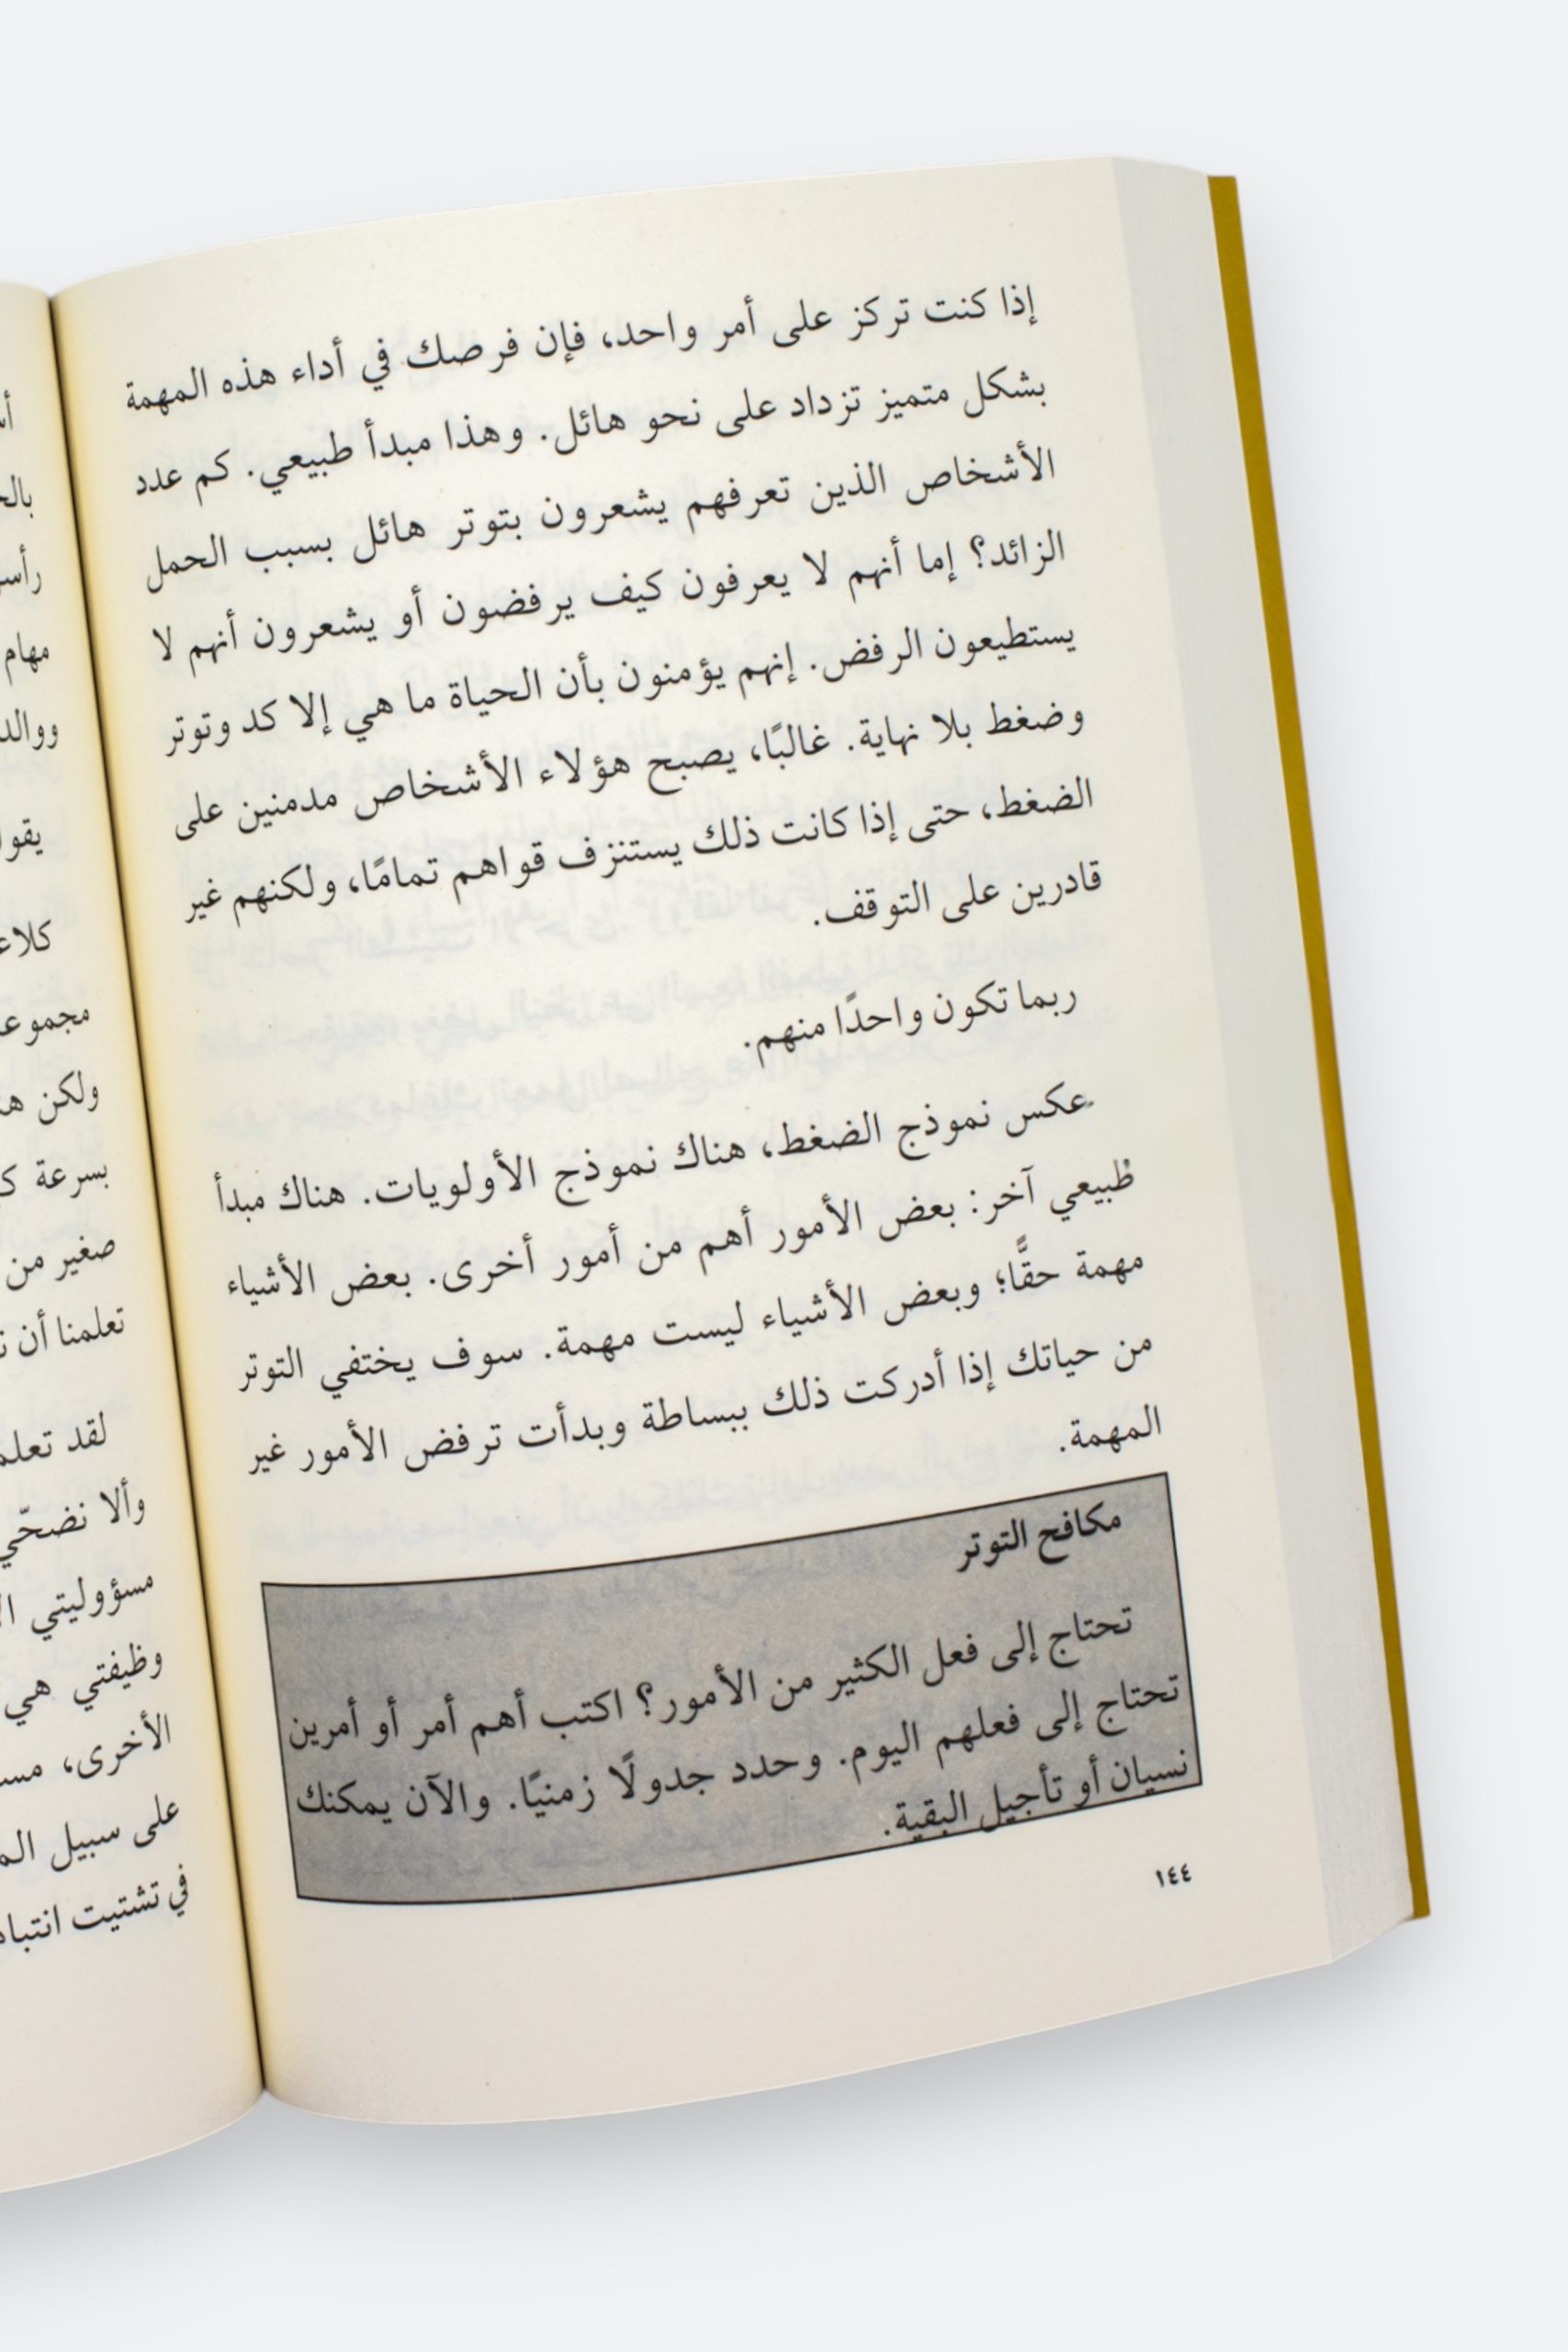 إذا كنت تركز على أمر واحد، فإن فرصك في أداء هذه المهمة
بشكل متميز تزداد على نحو هائل. وهذا مبدأ طبيعي. كم عدد
الأشخاص الذين تعرفهم يشعرون بتوتر هائل بسبب الحمل
الزائد؟ إما أنهم لا يعرفون كيف يرفضون أو يشعرون أنهم لا
يستطيعون الرفض. إنهم يؤمنون بأن الحياة ما هي إلا كد وتوتر
وضغط بلا نهاية. غالبًا، يصبح هؤلاء الأشخاص مدمنين على
الضغط، حتى إذا كانت ذلك يستنزف قواهم تمامًا، ولكنهم غير
قادرين على التوقف.
ربما تكون واحدًا منهم.
عكس نموذج الضغط، هناك نموذج الأولويات. هناك مبدأ
طبيعي آخر: بعض الأمور أهم من أمور أخرى. بعض الأشياء
مهمة حقًّا؛ وبعض الأشياء ليست مهمة. سوف يختفي التوتر
من حياتك إذا أدركت ذلك ببساطة وبدأت ترفض الأمور غير
المهمة.
مكافح التوتر
تحتاج إلى فعل الكثير من الأمور؟ اكتب أهم أمر أو أمرين
تحتاج إلى فعلهم اليوم. وحدد جدولًا زمنيًا. والآن يمكنك
نسيان أو تأجيل البقية.
١٤٤
مهام
كلاء
ولكن
بسرعة
صغير من
تعلمنا أن
لقد
وألا نضحّي
مسؤوليتي
وظيفتي هي
الأخرى،
على سبيل
في تشتيت